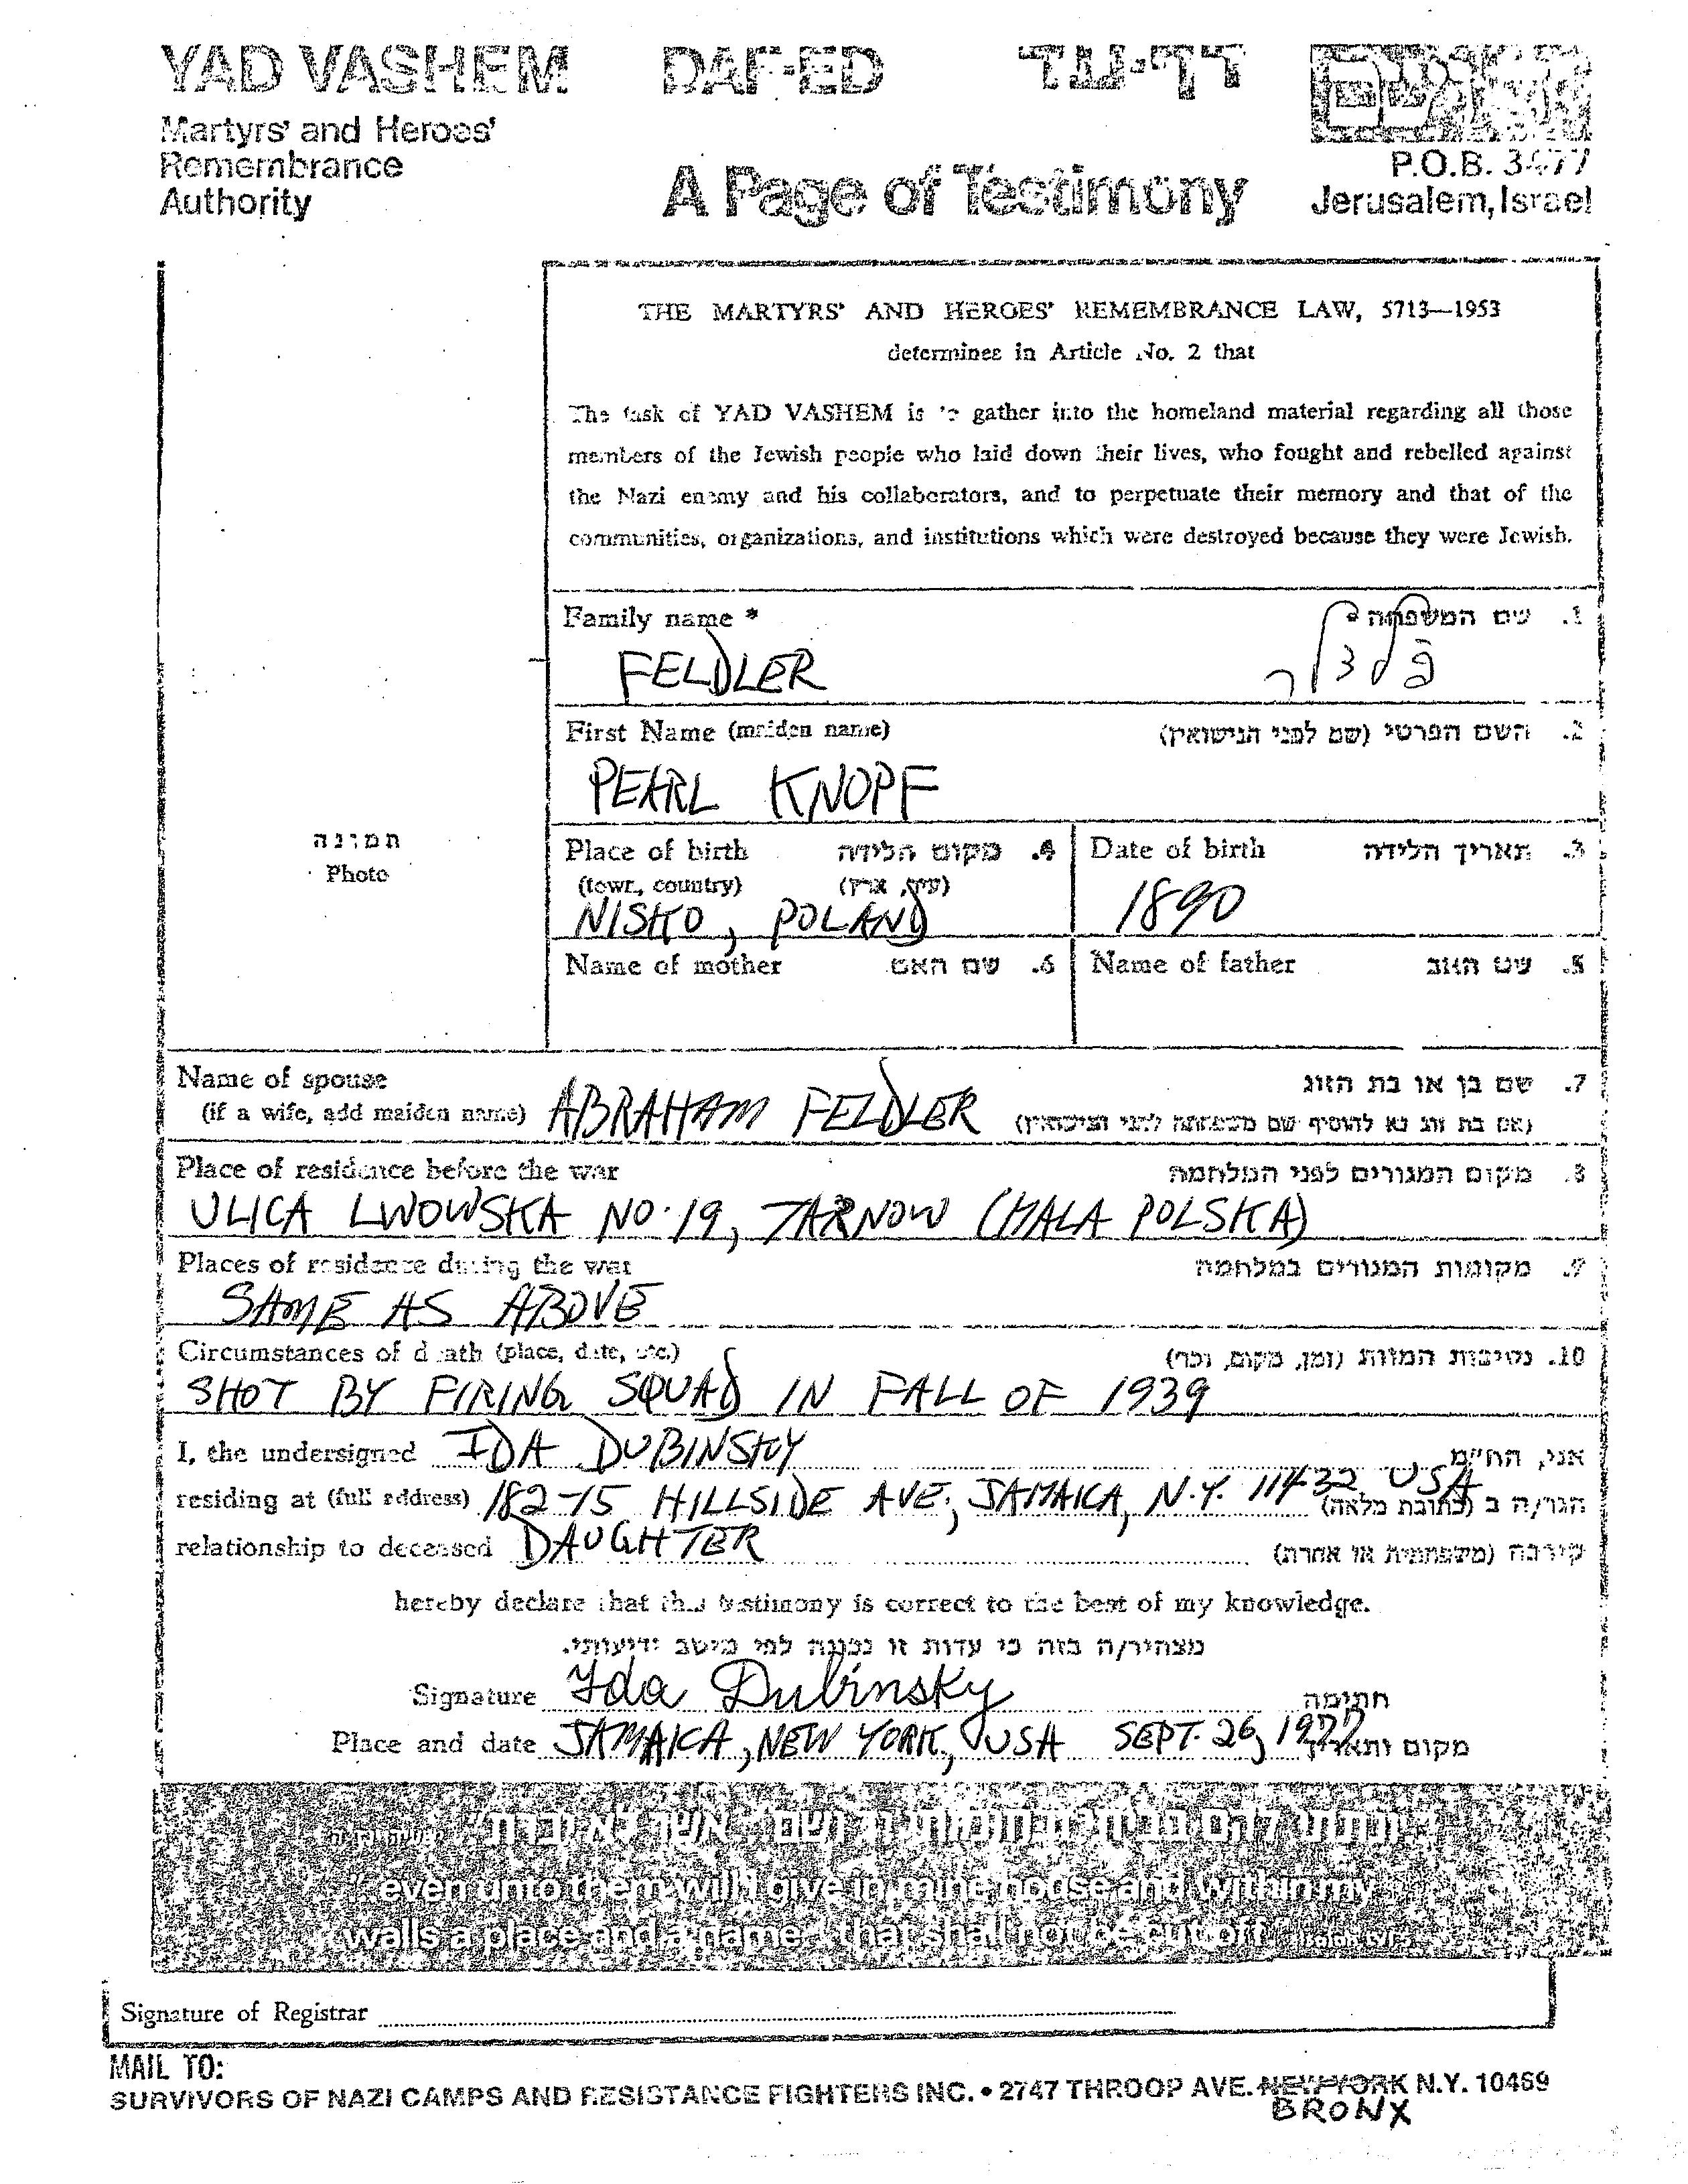 YAD VASHEM DAF-ED דף-עד
Martyrs' and Heroes'
Remembrance
Authority
A Page of Testimony
P.O.B. 3477
Jerusalem, Israel
THE MARTYRS' AND HEROES' REMEMBRANCE LAW, 5713—1953
determines in Article No. 2 that
The task of YAD VASHEM is to gather into the homeland material regarding all those
members of the Jewish people who laid down their lives, who fought and rebelled against
the Nazi enemy and his collaborators, and to perpetuate their memory and that of the
communities, organizations, and institutions which were destroyed because they were Jewish.
Family name * 1. שם המשפחה
FELDLER
First Name (maiden name) 2. השם הפרטי (שם לפני הנישואין)
PEARL KNOPF
תמונה
Photo
Place of birth 4. מקום הלידה
(town, country) (עיר, ארץ)
NISKO, POLAND
Date of birth 3. תאריך הלידה
1890
Name of mother 6. שם האם
Name of father 5. שם האב
Name of spouse 7. שם בן או בת הזוג
(if a wife, add maiden name) ABRAHAM FELDLER (אם בת זוג נא להוסיף שם משפחתה לפני הנישואין)
Place of residence before the war 8. מקום המגורים לפני המלחמה
ULICA LWOWSKA NO. 19, TARNOW (MALA POLSKA)
Places of residence during the war 9. מקומות המגורים במלחמה
SAME AS ABOVE
Circumstances of death (place, date, etc.) 10. נסיבות המוות (זמן, מקום, וכו')
SHOT BY FIRING SQUAD IN FALL OF 1939
I, the undersigned IDA DUBINSKY אני, הח"מ
residing at (full address) 182-15 HILLSIDE AVE., JAMAICA, N.Y. 11432 USA הגר/ה ב (כתובת מלאה)
relationship to deceased DAUGHTER קירבה (משפחתית או אחרת)
hereby declare that this testimony is correct to the best of my knowledge.
מצהיר/ה בזה כי עדות זו נכונה לפי מיטב ידיעותי.
Signature Ida Dubinsky חתימה
Place and date JAMAICA, NEW YORK, USA SEPT. 26, 1977 מקום ותאריך
"ונתתי להם בביתי ובחומותי יד ושם... אשר לא יכרת"
"...even unto them will I give in mine house and within my
walls a place and a name... that shall not be cut off" Isaiah
Signature of Registrar
MAIL TO:
SURVIVORS OF NAZI CAMPS AND RESISTANCE FIGHTERS INC. • 2747 THROOP AVE. NEW YORK N.Y. 10469
BRONX